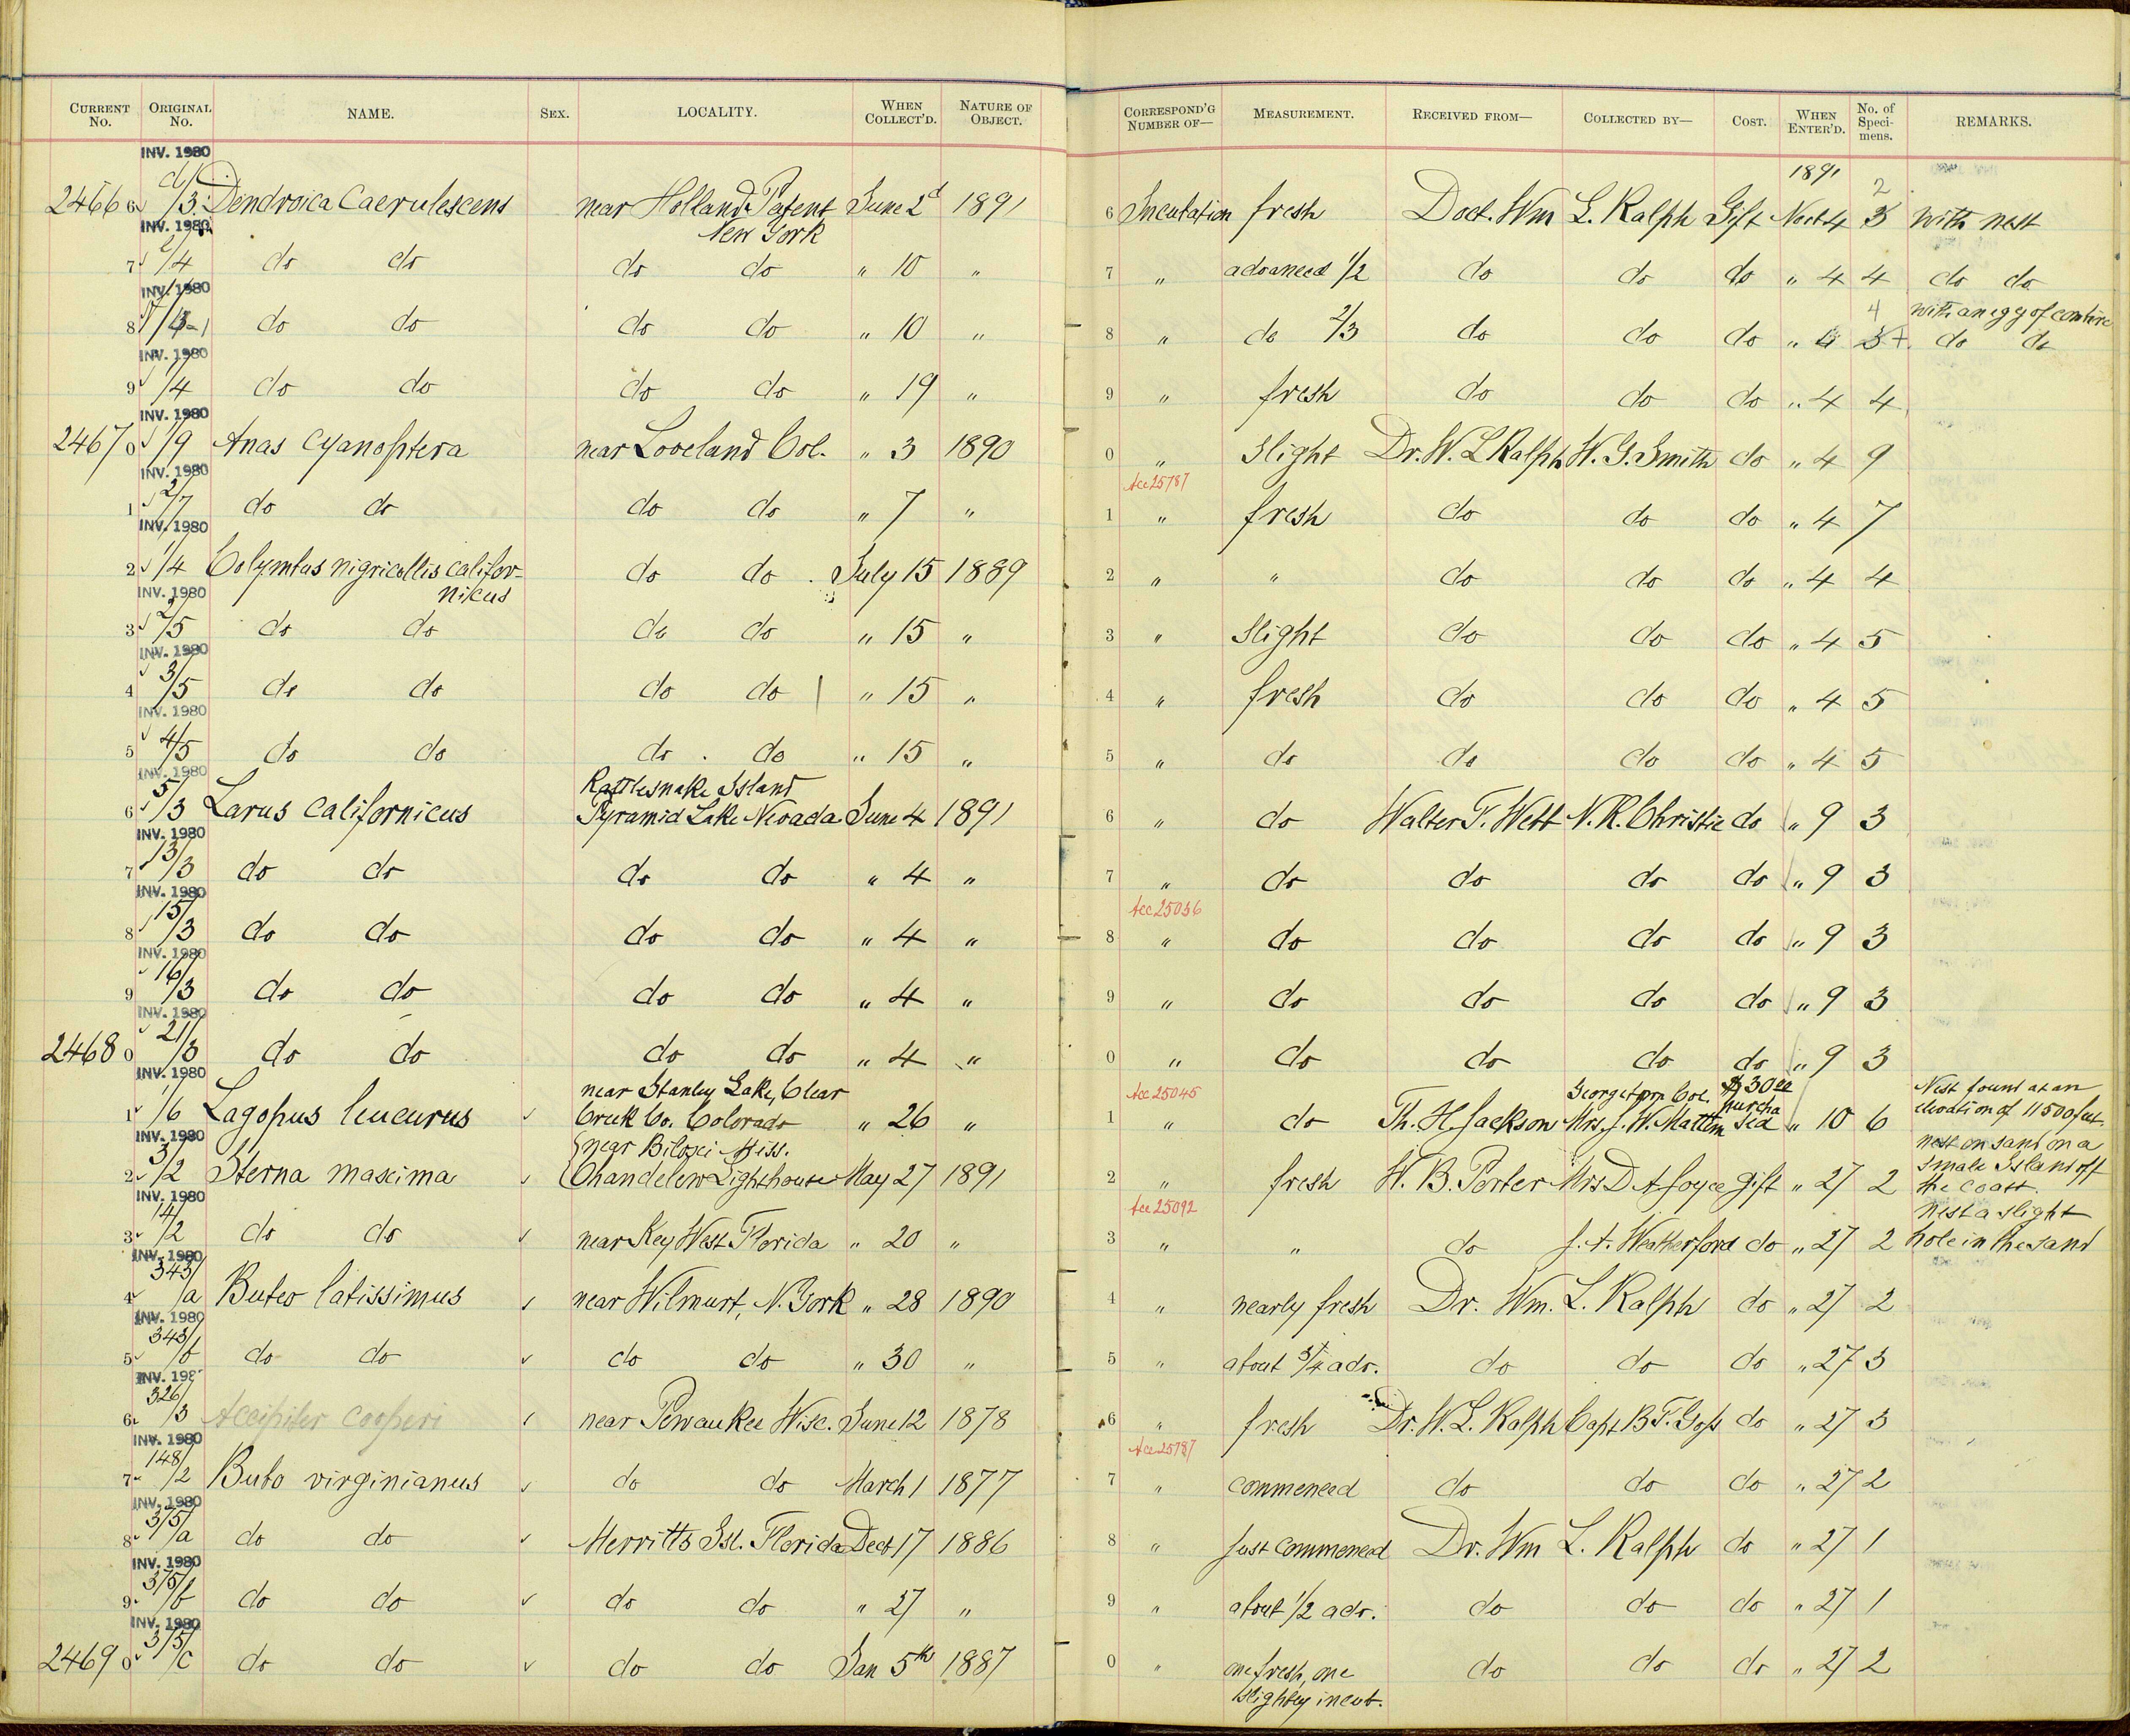 CURRENT No. ORIGINAL No. NAME. SEX. LOCALITY. WHEN COLLECT'D. NATURE OF OBJECT. CORRESPOND'G NUMBER OF— MEASUREMENT. RECEIVED FROM— COLLECTED BY— COST. WHEN ENTER'D. No. of Specimens. REMARKS.
INV. 1980
1891
2
2466 6 /3 Dendroica Caerulescens near Holland Patent June 2d 1891 6 Incubation fresh Doct. Wm L. Ralph Gift Nov 4 3 with nest
INV. 1980 New York
7 /4 do do do do " 10 " 7 " advanced 1/2 do do do " 4 4 do do
INV. 1980 4 with an egg of
8 do do do do " 10 " 8 " do 2/3 do do do " 4 3+ do do
INV. 1980
9 /4 do do do do " 19 " 9 " fresh do do do " 4 4
INV. 1980
2467 0 /9 Anas Cyanoptera near Loveland Col. " 3 1890 0 " Slight Dr. W. L Ralph W. G. Smith do " 4 9
INV. 1980 Acc 25787
1 2/7 do do do do " 7 " 1 " fresh do do do " 4 7
INV. 1980
2 1/4 Colymbus nigricollis califor- do do July 15 1889 2 " " do do do " 4 4
INV. 1980 nicus
3 2/5 do do do do " 15 " 3 " Slight do do do " 4 5
INV. 1980
4 3/5 do do do do " 15 " 4 " fresh do do do " 4 5
INV. 1980
5 4/5 do do do do " 15 " 5 " do do do do " 4 5
INV. 1980 Rattlesnake Island
6 5/3 Larus Californicus Pyramid Lake Nevada June 4 1891 6 " do Walter F. Webb N. R. Christie do " 9 3
INV. 1980
7 13/3 do do do do " 4 " 7 " do do do do " 9 3
INV. 1980 Acc 25036
8 15/3 do do do do " 4 " 8 " do do do do " 9 3
INV. 1980
9 16/3 do do do do " 4 " 9 " do do do do " 9 3
INV. 1980
2468 0 21/3 do do do do " 4 " 0 " do do do do " 9 3
INV. 1980 near Stanley Lake, Clear Acc 25045 Georgetown Col. $30.00 Nest found at an
1 1/6 Lagopus leucurus Creek Co. Colorado " 26 " 1 " do Th. H. Jackson Mrs. J. W. purchased " 10 6 elevation of 11500 feet.
INV. 1980 near Biloxi Miss. nest on sand on a
2 3/2 Sterna maxima Chandeleur Lighthouse May 27 1891 2 " fresh H. B. Porter Mrs D A Joyce gift " 27 2 small Island off
INV. 1980 Acc 25092 the coast.
nest a slight
3 14/2 do do near Key West Florida " 20 " 3 " " do J. A. Weatherford do " 27 2 hole in the sand
INV. 1980
4 343/a Buteo latissimus near Wilmurt, N. York " 28 1890 4 " nearly fresh Dr. Wm. L. Ralph do " 27 2
INV. 1980
5 343/b do do do do " 30 " 5 " about 3/4 adv. do do do " 27 3
INV. 198
6 326/3 Accipiter cooperi near Pewaukee Wisc. June 12 1878 6 " fresh Dr. W. L. Ralph Capt B. F. Goss do " 27 3
INV. 1980 Acc 25787
7 148/2 Bubo virginianus do do March 1 1877 7 " commenced do do do " 27 2
INV. 1980
8 375/a do do Merritts Isl. Florida Dect 17 1886 8 " Just commenced Dr. Wm L. Ralph do " 27 1
INV. 1980
9 375/b do do do do " 27 " 9 " about 1/2 adv. do do do " 27 1
INV. 1980
2469 0 375/c do do do do Jan 5th 1887 0 " one fresh, one do do do " 27 2
slightly incub.